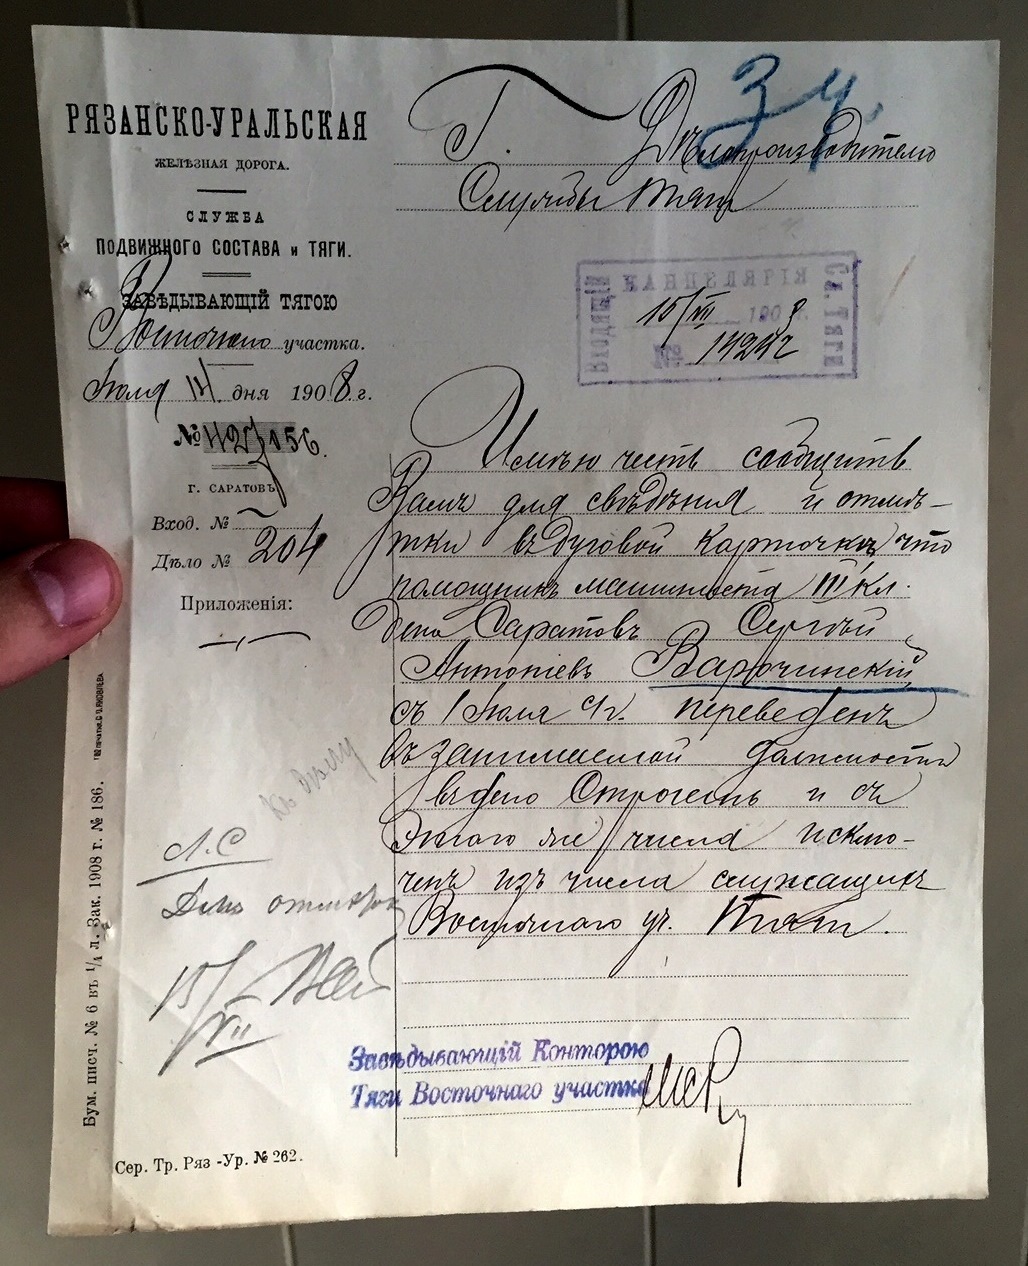 РЯЗАНСКО-УРАЛЬСКАЯ
ЖЕЛѢЗНАЯ ДОРОГА.
СЛУЖБА
ПОДВИЖНОГО СОСТАВА и ТЯГИ.
ЗАВѢДЫВАЮЩІЙ ТЯГОЮ
Восточнаго участка.
Іюля 14 дня 1908 г.
№
г. САРАТОВЪ
Вход. №
Дѣло № 204
Приложенія:
З ч.
Г. Дѣлопроизводителю
Службы Тяги
ВХОДЯЩІЙ
КАНЦЕЛЯРІЯ
Сл. ТЯГИ
15/VII 1908 г.
№
Имѣю честь сообщить
Вамъ для свѣдѣнія и отмѣ-
тки въ карточкѣ что
помощникъ машиниста III кл.
депо Саратовъ Сергѣй
Антоніевъ
съ 1 Іюля с/г. переведенъ
въ занимаемой должности
въ депо и съ
этого же числа исклю-
ченъ изъ числа служащихъ
Восточнаго уч. Тяги.
къ дѣлу
Л.С
15/VII
Завѣдывающій Конторою
Тяги Восточнаго участка
Сер. Тр. Ряз-Ур. № 262.
Бум. писч. № 6 въ 1/4 л. Зак. 1908 г. № 186.